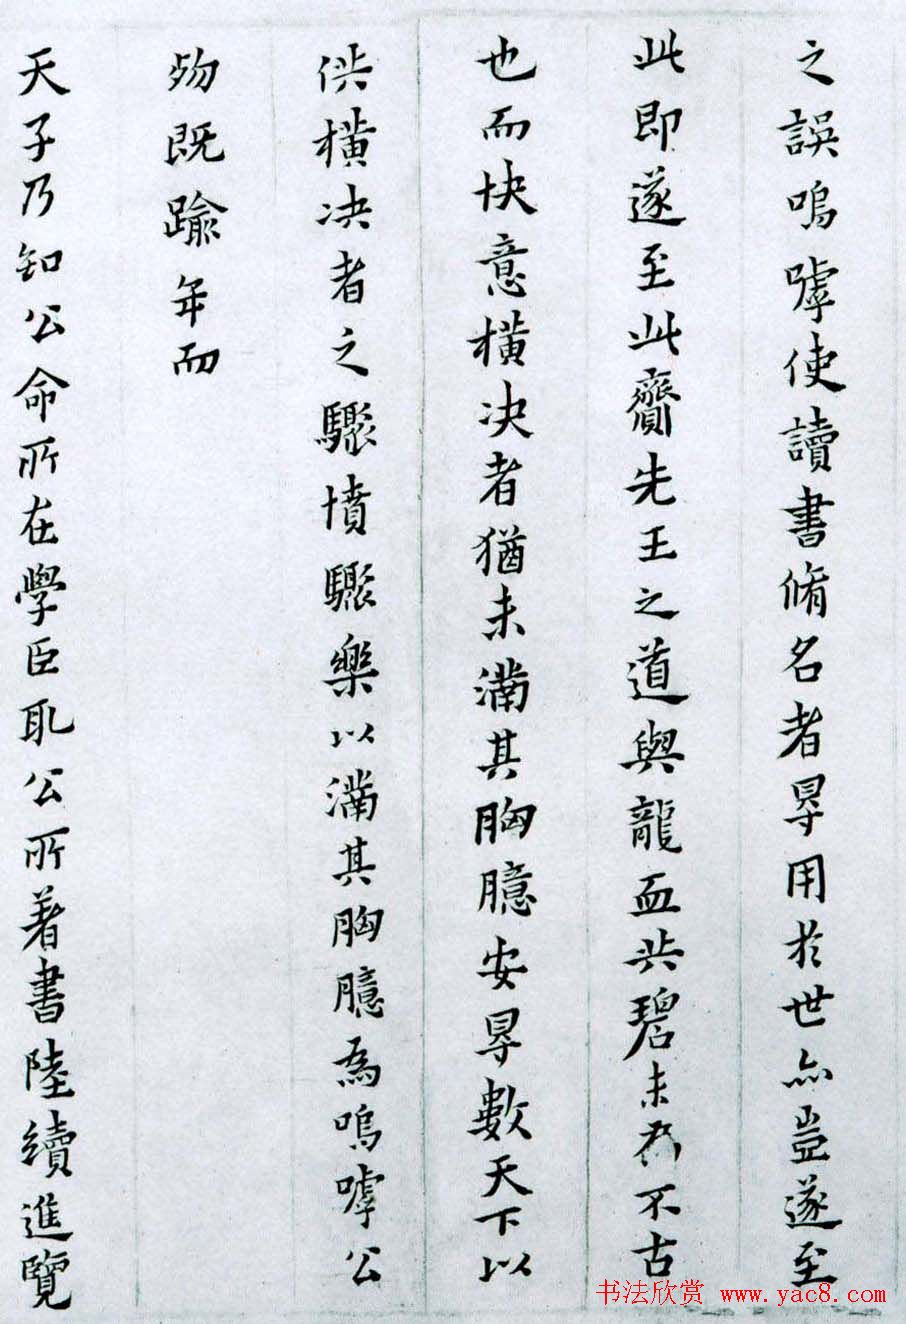 之誤嗚嘑使讀書脩名者㝵用於世亦豈遂至
此即遂至此齎先王之道與龍血共碧未為不古
也而快意橫决者猶未滿其胸臆安㝵數天下以
供橫决者之驟憤驟樂以滿其胸臆為嗚嘑公
歾既踰年而
天子乃知公命所在學臣取公所著書陸續進覽
书法欣赏 www.yac8.com